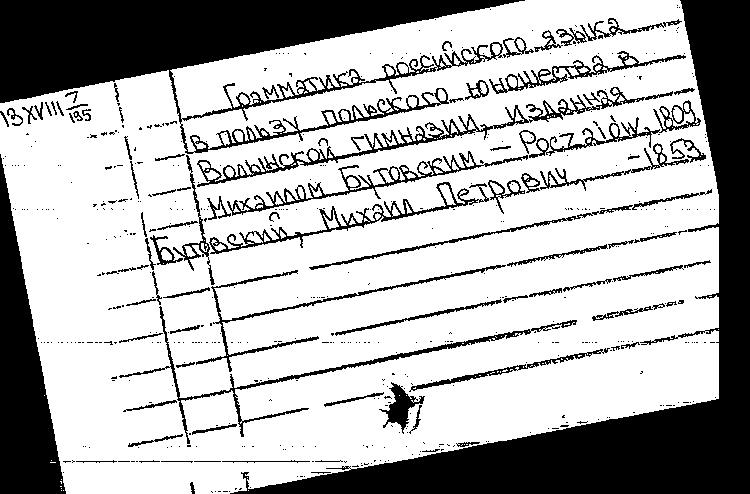 13 XVIII 7/135
Грамматика российского языка
в пользу польского юношества в
Волынской гимназии, изданная
Михаилом Бутовским. — Poczaiów, 1809
Бутовский, Михаил Петрович, -1853